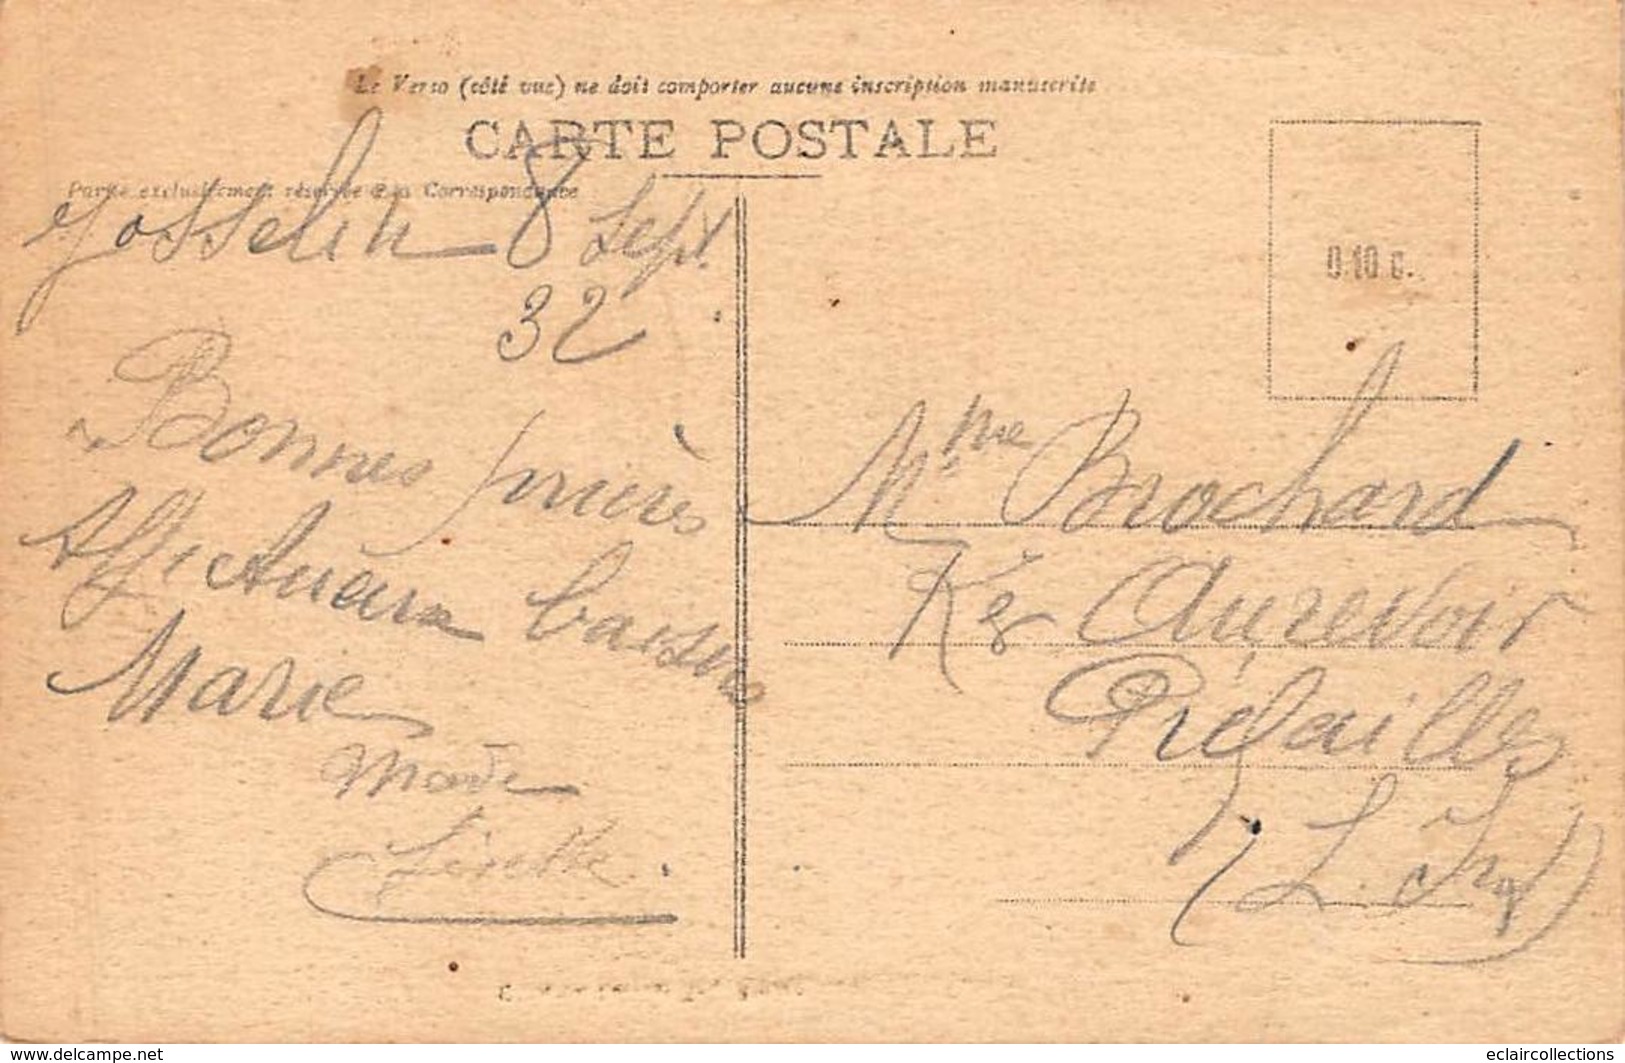 Le Verso (côté vue) ne doit comporter aucune inscription manuscrite
CARTE POSTALE
Partie exclusivement réservée à la Correspondance
Josselin 8 Sept.
32
Bonnes prières
Affectueux baisers
Marie
Made
Linette
0.10 c.
Mme Brochard
Ker Aurevoir
Préfailles
(L. Inf)
www.delcampe.net
eclaircollections